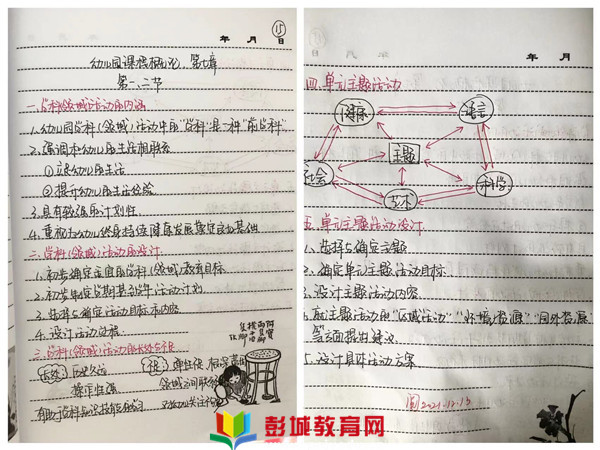 15
年 月 日
幼儿园课程概论 第七章
第一、二节
一、学科(领域)活动的内涵
1. 幼儿园学科(领域)活动中的"学科"是一种"前学科"
2. 强调和幼儿的生活相联系
①立足幼儿的生活
②提升幼儿的生活经验
3. 具有较强的计划性
4. 重视为幼儿终身持续健康发展奠定良好基础
二、学科(领域)活动的设计
1. 初步确定主宜的学科(领域)教育目标
2. 初步制定学期甚至学年活动计划
3. 选择与确定活动目标和内容
4. 设计活动过程
三、学科(领域)活动的长处与短
操作性强
领域之间联
有助于学科知识技能的
年 月
四. 单元主题活动
健康
语言
主题
社会
科学
艺术
五. 单元主题活动设计
1. 选择与确定主题
2. 确定单元主题活动目标
3. 设计主题活动内容
4. 就主题活动的"区域活动""环境资源""园外资源"
等方面提出建议
5. 设计具体活动方案
阅 2021.12.13
彭城教育网